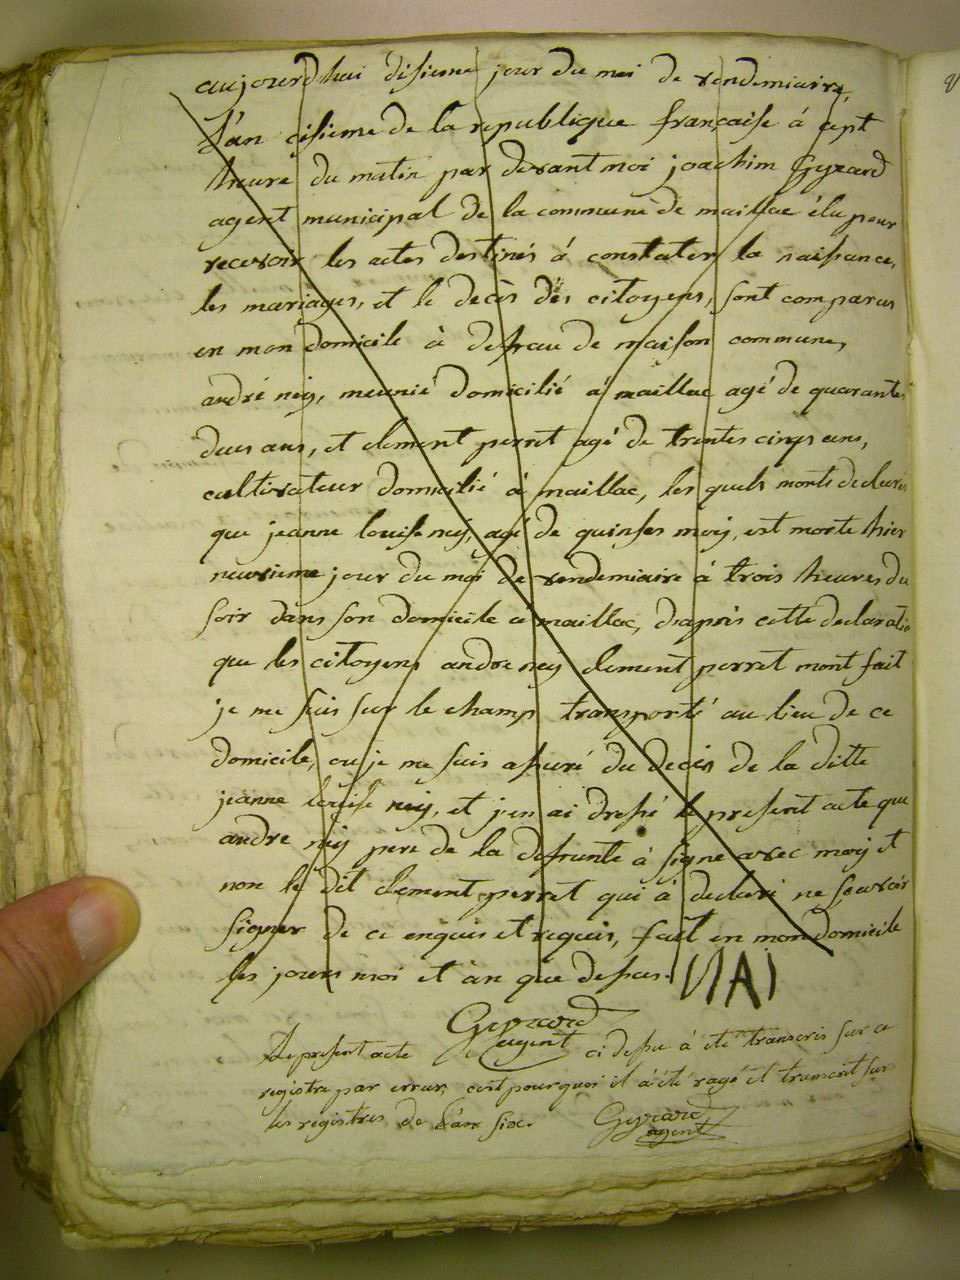 aujourdhui disieme jour du moi de vendemiaire,
l'an cisieme de la republique française à sept
heure du matin par devant moi joachim Gyrard
agent municipal de la commune de maillac élu pour
recevoir les actes destinés à constater la naissance,
les mariages, et le decès des citoyens, sont comparus
en mon domicile à defeau de maison commune,
andré ney, meunié domicilié à maillac agé de quarante
deus ans, et clement perret agé de trentes cinqs ans,
cultivateur domicilié à maillac, les quels monts declaré
que jeanne louise ney, agé de quinses moy, est morte hier
neuvieme jour du moi de vendemiaire à trois heures du
soir dans son domicile à maillac, d'apris cette declaratio
que les citoyens andre ney clement perret mont fait
je me suis sur le champ transporté au lieu de ce
domicile, ou je me suis assuré du decès de la ditte
jeanne louise ney, et j'en ai dressé le present acte que
andre ney pere de la defunte à signe avec moy et
non le dit clement perret qui à declaré ne scavoir
signer de ce enquis et requis, fait en mon domicile
les jours moi et àn que dessus.
Gyrard
agent
Le present acte ci dessu à été transcris sur ce
registre par erreur, cest pourquoi il à été rayé et transcrit sur
les registres de l'an six. Gyrard
agent